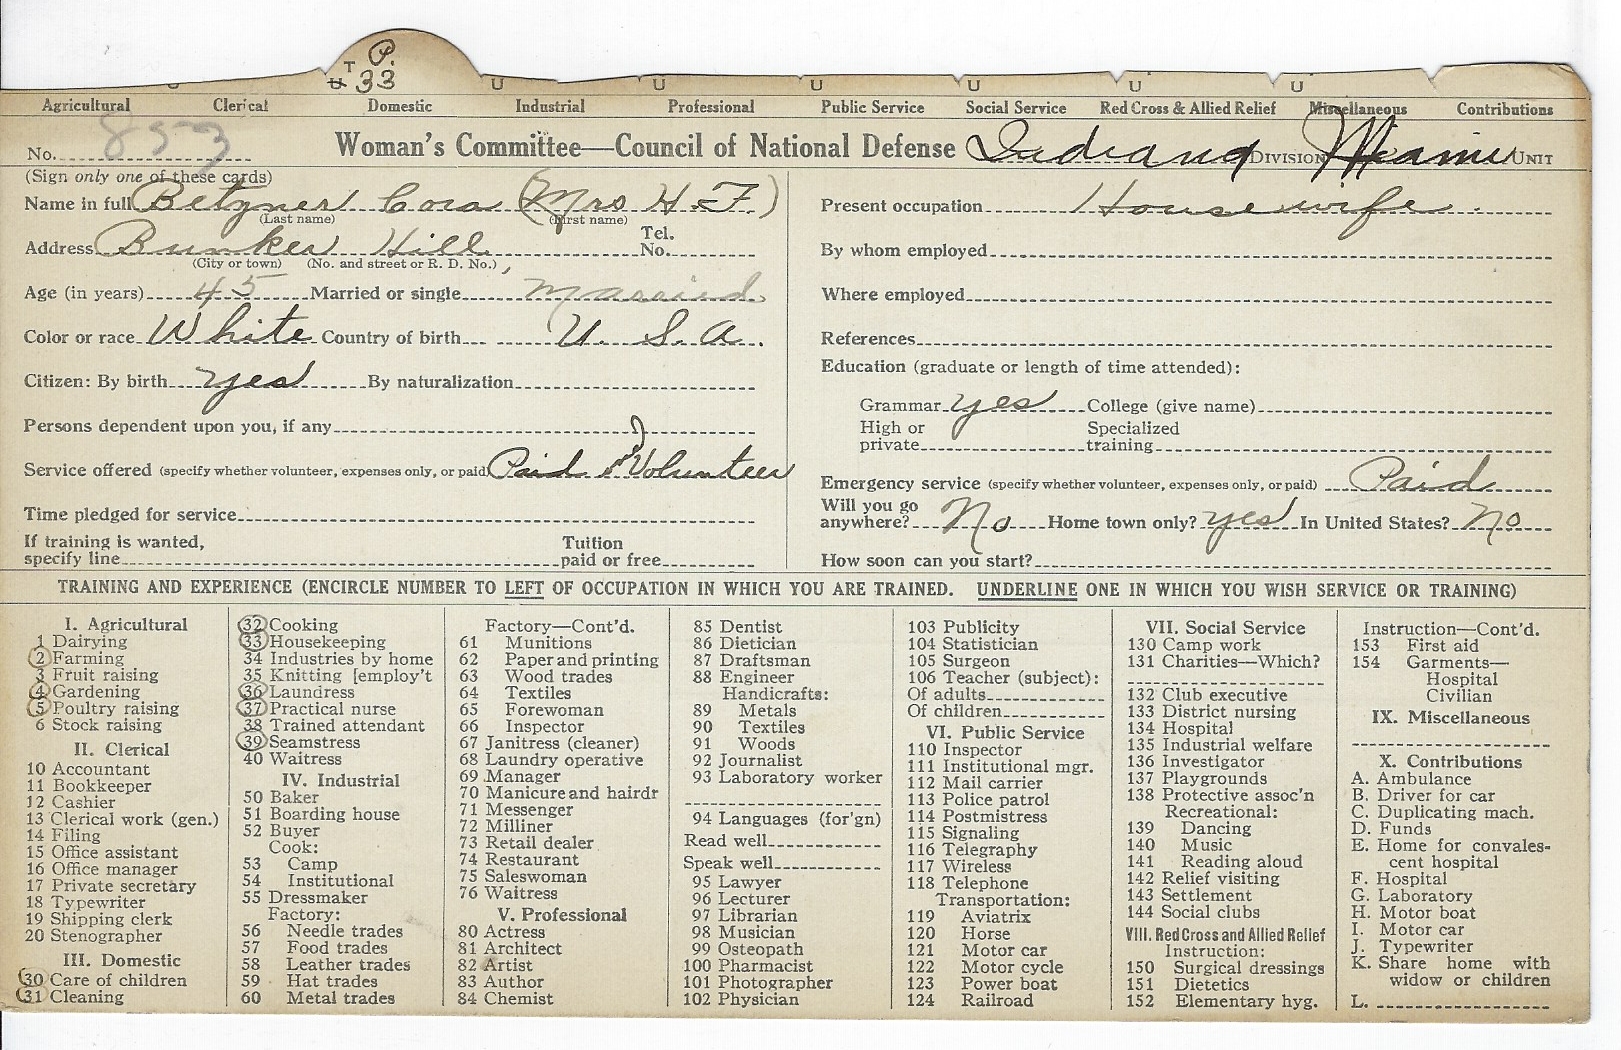 P.
T 33
U U U U U U U U
Agricultural Clerical Domestic Industrial Professional Public Service Social Service Red Cross & Allied Relief Miscellaneous Contributions
No. 853 Woman's Committee—Council of National Defense Indiana DIVISION Miami UNIT
(Sign only one of these cards)
Name in full Betzner Cora (Mrs H. F.)
(Last name) (First name)
Address Bunker Hill Tel. No.
(City or town) (No. and street or R. D. No.)
Age (in years) 45 Married or single Married
Color or race White Country of birth U. S. A.
Citizen: By birth yes By naturalization
Persons dependent upon you, if any
Service offered (specify whether volunteer, expenses only, or paid) Paid & Volunteer
Time pledged for service
If training is wanted, specify line Tuition paid or free
Present occupation Housewife
By whom employed
Where employed
References
Education (graduate or length of time attended):
Grammar yes College (give name)
High or private Specialized training
Emergency service (specify whether volunteer, expenses only, or paid) Paid
Will you go anywhere? No Home town only? yes In United States? no
How soon can you start?
TRAINING AND EXPERIENCE (ENCIRCLE NUMBER TO LEFT OF OCCUPATION IN WHICH YOU ARE TRAINED. UNDERLINE ONE IN WHICH YOU WISH SERVICE OR TRAINING)
I. Agricultural
1 Dairying
2 Farming
3 Fruit raising
4 Gardening
5 Poultry raising
6 Stock raising
II. Clerical
10 Accountant
11 Bookkeeper
12 Cashier
13 Clerical work (gen.)
14 Filing
15 Office assistant
16 Office manager
17 Private secretary
18 Typewriter
19 Shipping clerk
20 Stenographer
III. Domestic
30 Care of children
31 Cleaning
32 Cooking
33 Housekeeping
34 Industries by home
35 Knitting [employ't
36 Laundress
37 Practical nurse
38 Trained attendant
39 Seamstress
40 Waitress
IV. Industrial
50 Baker
51 Boarding house
52 Buyer
Cook:
53 Camp
54 Institutional
55 Dressmaker
Factory:
56 Needle trades
57 Food trades
58 Leather trades
59 Hat trades
60 Metal trades
Factory—Cont'd.
61 Munitions
62 Paper and printing
63 Wood trades
64 Textiles
65 Forewoman
66 Inspector
67 Janitress (cleaner)
68 Laundry operative
69 Manager
70 Manicure and hairdr
71 Messenger
72 Milliner
73 Retail dealer
74 Restaurant
75 Saleswoman
76 Waitress
V. Professional
80 Actress
81 Architect
82 Artist
83 Author
84 Chemist
85 Dentist
86 Dietician
87 Draftsman
88 Engineer
Handicrafts:
89 Metals
90 Textiles
91 Woods
92 Journalist
93 Laboratory worker
94 Languages (for'gn)
Read well
Speak well
95 Lawyer
96 Lecturer
97 Librarian
98 Musician
99 Osteopath
100 Pharmacist
101 Photographer
102 Physician
103 Publicity
104 Statistician
105 Surgeon
106 Teacher (subject):
Of adults
Of children
VI. Public Service
110 Inspector
111 Institutional mgr.
112 Mail carrier
113 Police patrol
114 Postmistress
115 Signaling
116 Telegraphy
117 Wireless
118 Telephone
Transportation:
119 Aviatrix
120 Horse
121 Motor car
122 Motor cycle
123 Power boat
124 Railroad
VII. Social Service
130 Camp work
131 Charities—Which?
132 Club executive
133 District nursing
134 Hospital
135 Industrial welfare
136 Investigator
137 Playgrounds
138 Protective assoc'n
Recreational:
139 Dancing
140 Music
141 Reading aloud
142 Relief visiting
143 Settlement
144 Social clubs
VIII. Red Cross and Allied Relief
Instruction:
150 Surgical dressings
151 Dietetics
152 Elementary hyg.
Instruction—Cont'd.
153 First aid
154 Garments—
Hospital
Civilian
IX. Miscellaneous
X. Contributions
A. Ambulance
B. Driver for car
C. Duplicating mach.
D. Funds
E. Home for convales-
cent hospital
F. Hospital
G. Laboratory
H. Motor boat
I. Motor car
J. Typewriter
K. Share home with
widow or children
L.